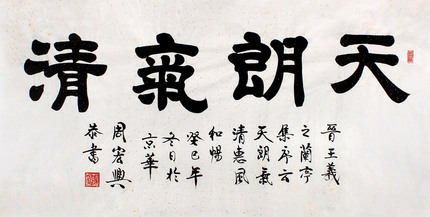 天朗氣清
晉王羲
之蘭亭
集序云
天朗氣
清惠風
和暢
癸巳年
冬日於
京華
周宏興
恭書